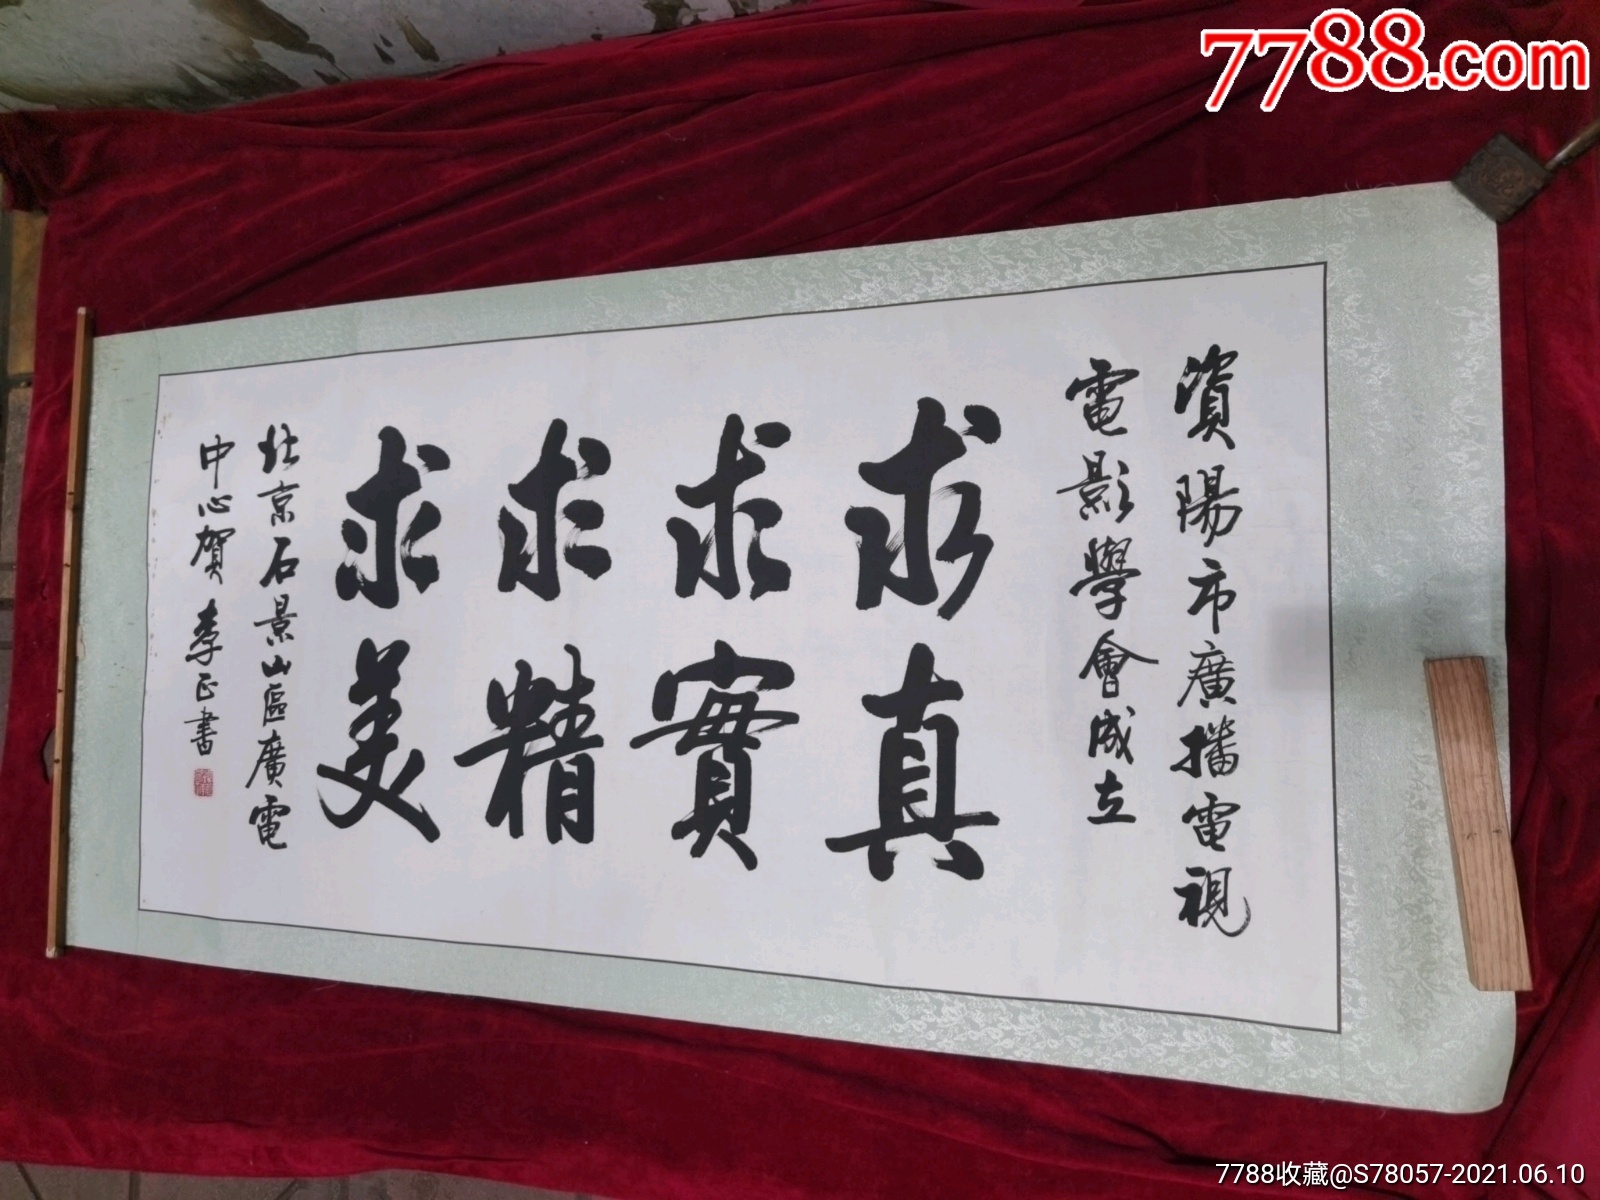 7788.com
資陽市廣播電視
電影學會成立
求真
求實
求精
求美
北京石景山區廣電
中心賀 李正書
7788收藏@S78057-2021.06.10